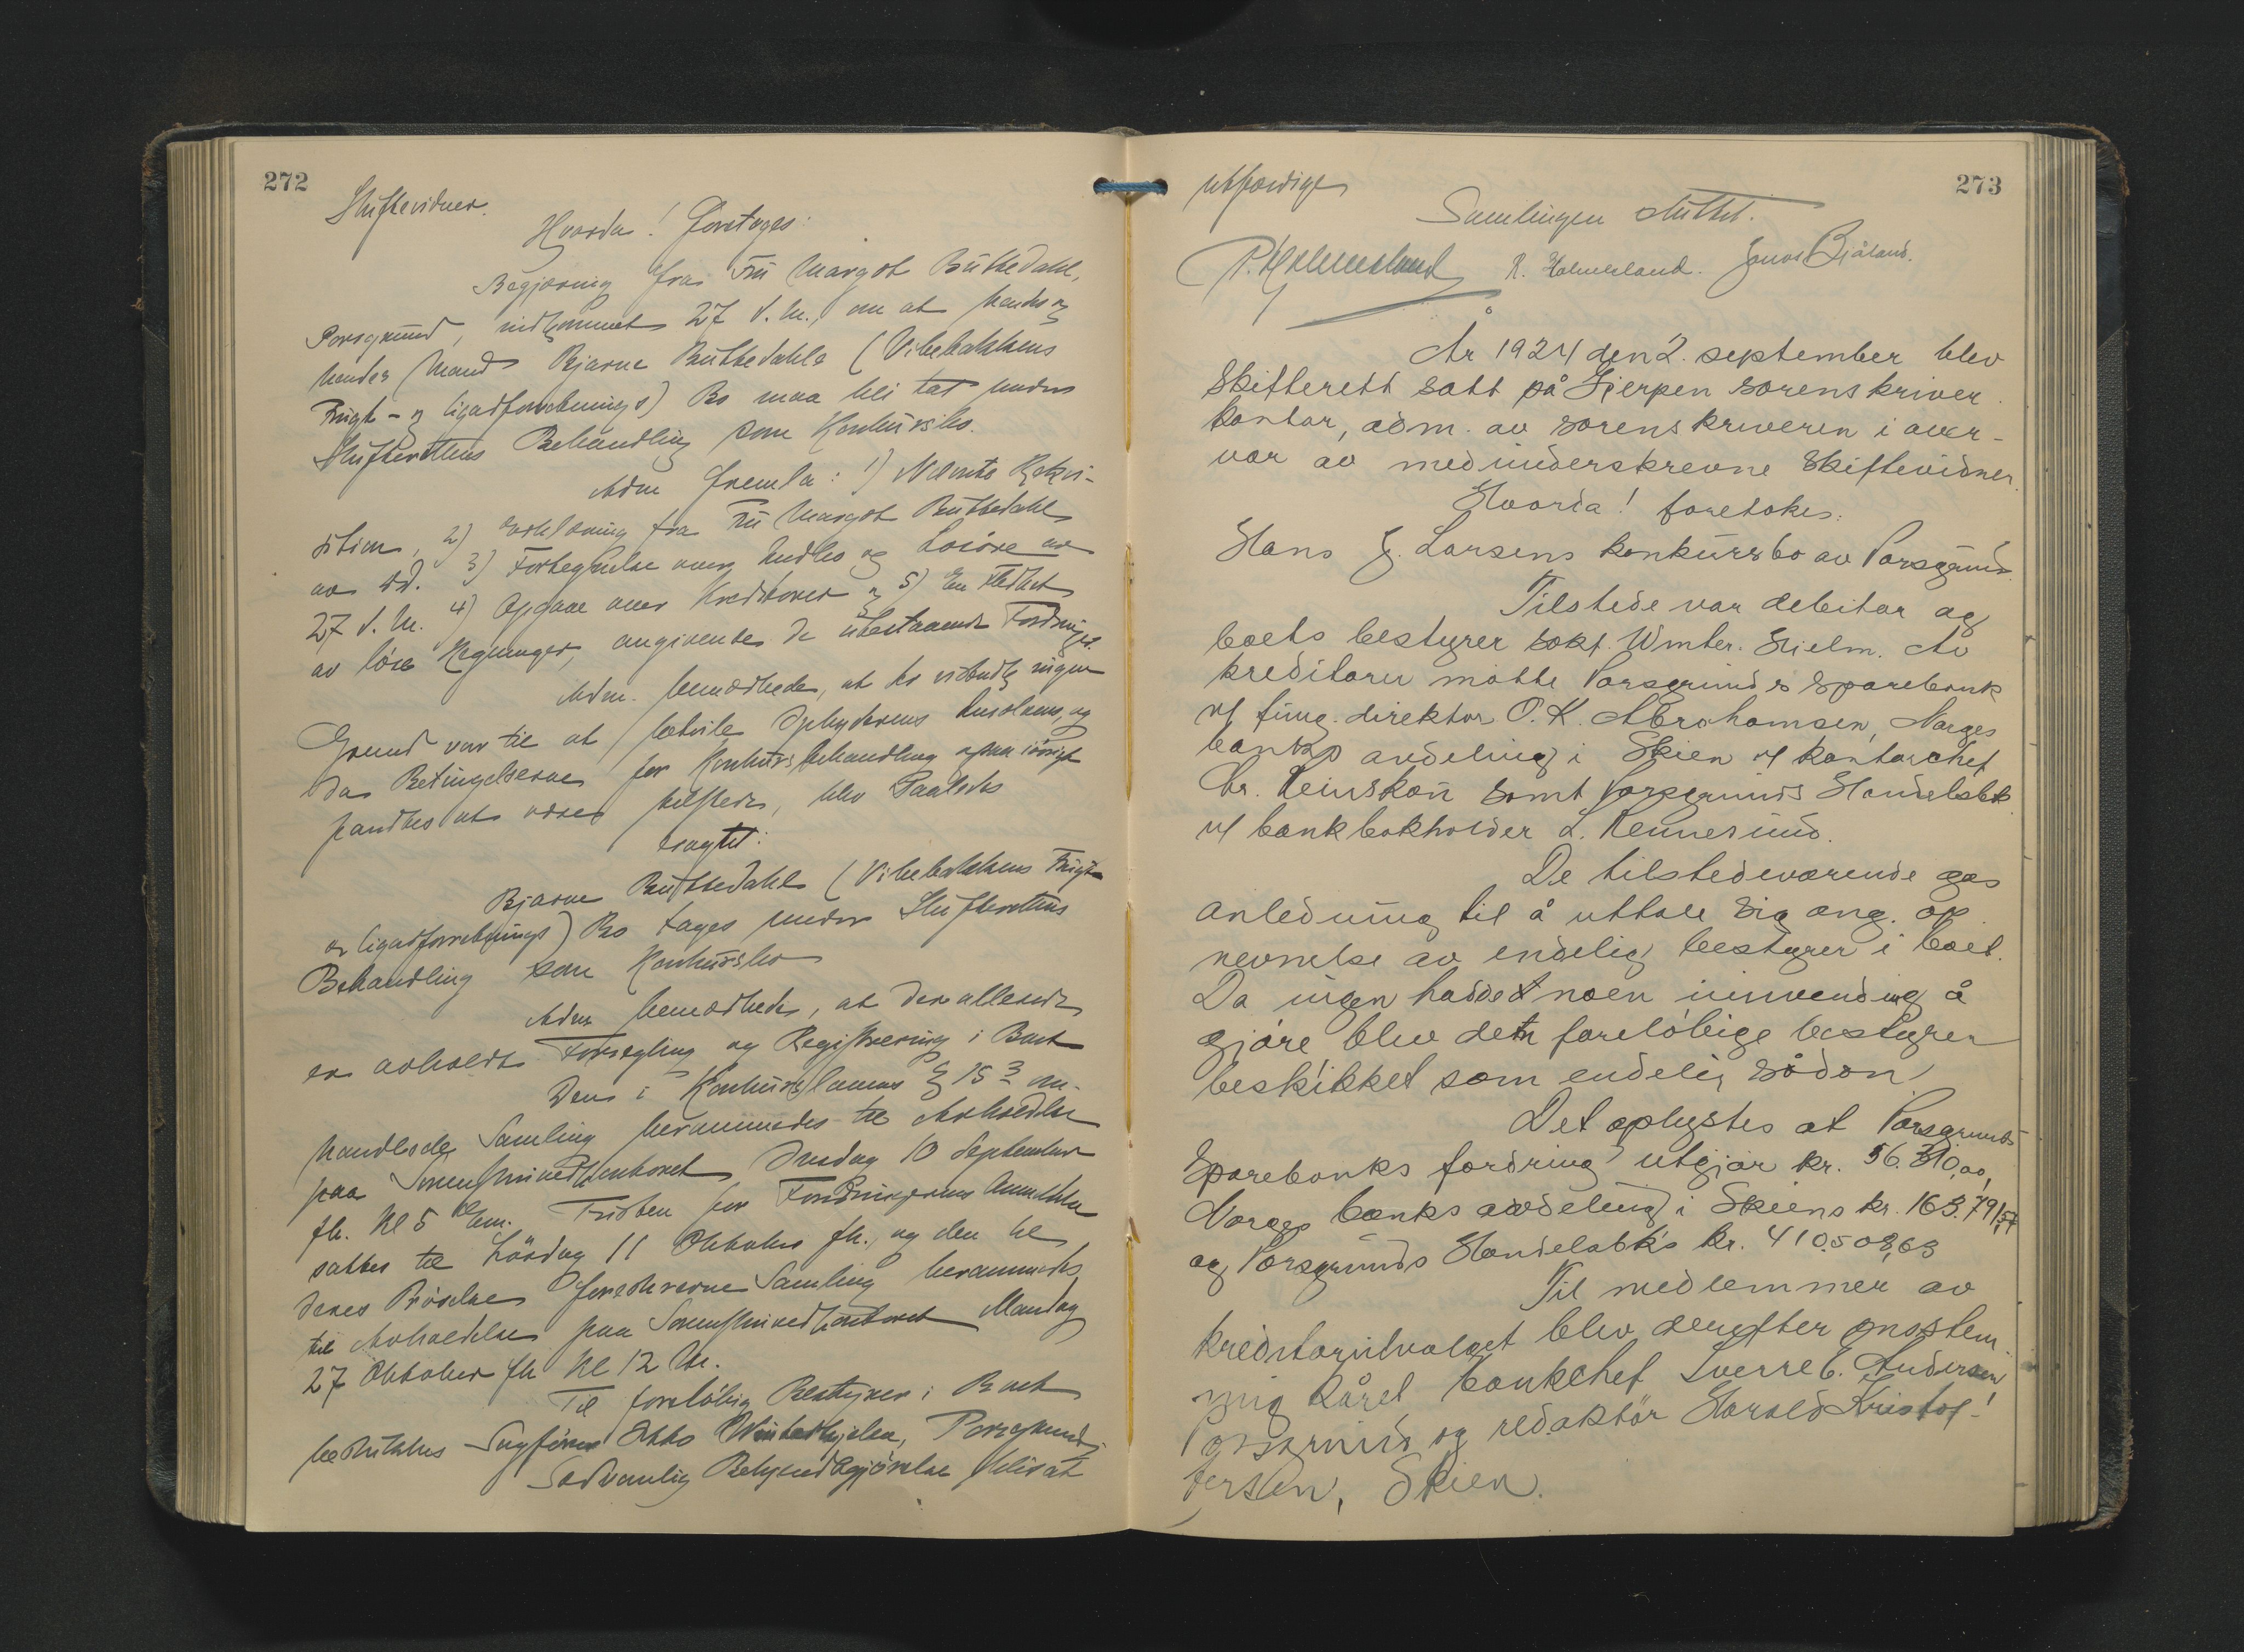 272
Skiftevidner.
Hvorda! foretoges:
Begjæring fra Fru Margot Buttedahl,
Porsgrund, indkommet 27 d.M., om at hendes og
hendes Mands Bjarne Buttedahls (Vibebakkens
Frugt- og Cigarforretnings) Bo maa bli tat under
Skifterettens Behandling som Konkursbo.
Adm fremla: 1) Nævnte Rekvi-
sition, 2) Erklæring fra Fru Margot Buttedahl
av s.d. 3) Fortegnelse over Indbo og Løsøre av
27 d.M. 4) Opgave over Kreditorer og 5) En Hæfte
av løse Regninger, angivende de utestaaende Fordringer.
Adm. bemærkede, at der ingen
Grund var til at betvile Skyldnerens Insolvens, og
da Betingelserne for Konkursbehandling ogsaa iøvrigt
fandtes at være tilstede, blev Saaledes
eragtet:
Bjarne Buttedahls (Vibebakkens Frugt-
og Cigarforretnings) Bo tages under Skifterettens
Behandling som Konkursbo
Adm bemærkede, at der allerede
er avholdt Forsegling og Registrering i Boet
Den i Konkurslovens § 15 3 om-
handlede Samling berammedes til Avholdelse
paa Sorenskriverkontoret Onsdag 10 September
fk. Kl 5 Em. Fristen for Fordringernes Anmeldelse
sattes til Lørdag 11 Oktober fk., og den til
deres Prøvelse foreskrevne Samling berammedes
til Avholdelse paa Sorenskriverkontoret Mandag
27 Oktober fk Kl 12 Md.
Til foreløbig Bestyrer i Boet
beskikkes Sagfører Otto Winterhjelm, Porsgrund,
Sedvanlig Bekjendtgjørelse blir at
273
utfærdige
Samlingen sluttet.
P. Holmesland R. Holmesland. Jonas Bjåland.
År 1924 den 2. september blev
Skifterett satt på Gjerpen sorenskriver
kontor, adm. av sorenskriveren i over-
vær av medunderskrevne Skiftevidner.
Hvorda! foretokes:
Hans J. Larsens konkursbo av Porsgrund.
Tilstede var debitor og
boets bestyrer sakf. Winter-Hjelm. Av
kreditorer møtte Porsgrunds Sparebank
v/ fung. direktør O. K. Abrahamsen, Norges
banks avdeling i Skien v/ kontorchef
Chr. Reinskou samt Porsgrunds Handelsbk
v/ bankbokholder L. Rennesund.
De tilstedeværende gas
anledning til å uttale sig ang. op
nevnelse av endelig bestyrer i boet.
Da ingen hadde noen innvending å
gjøre blev den foreløbige bestyrer
beskikket som endelig sådan
Det oplystes at Porsgrunds
Sparebanks fordring utgjør kr. 56.310,00,
Norges banks avdeling i Skiens kr. 163.791,57
og Porsgrunds Handelsbk's kr. 410.508,63
Til medlemmer av
kreditorutvalget blev derefter enstem
mig kåret bankchef Sverre C. Andersen
Porsgrund og redaktør Harald Kristof-
fersen, Skien.